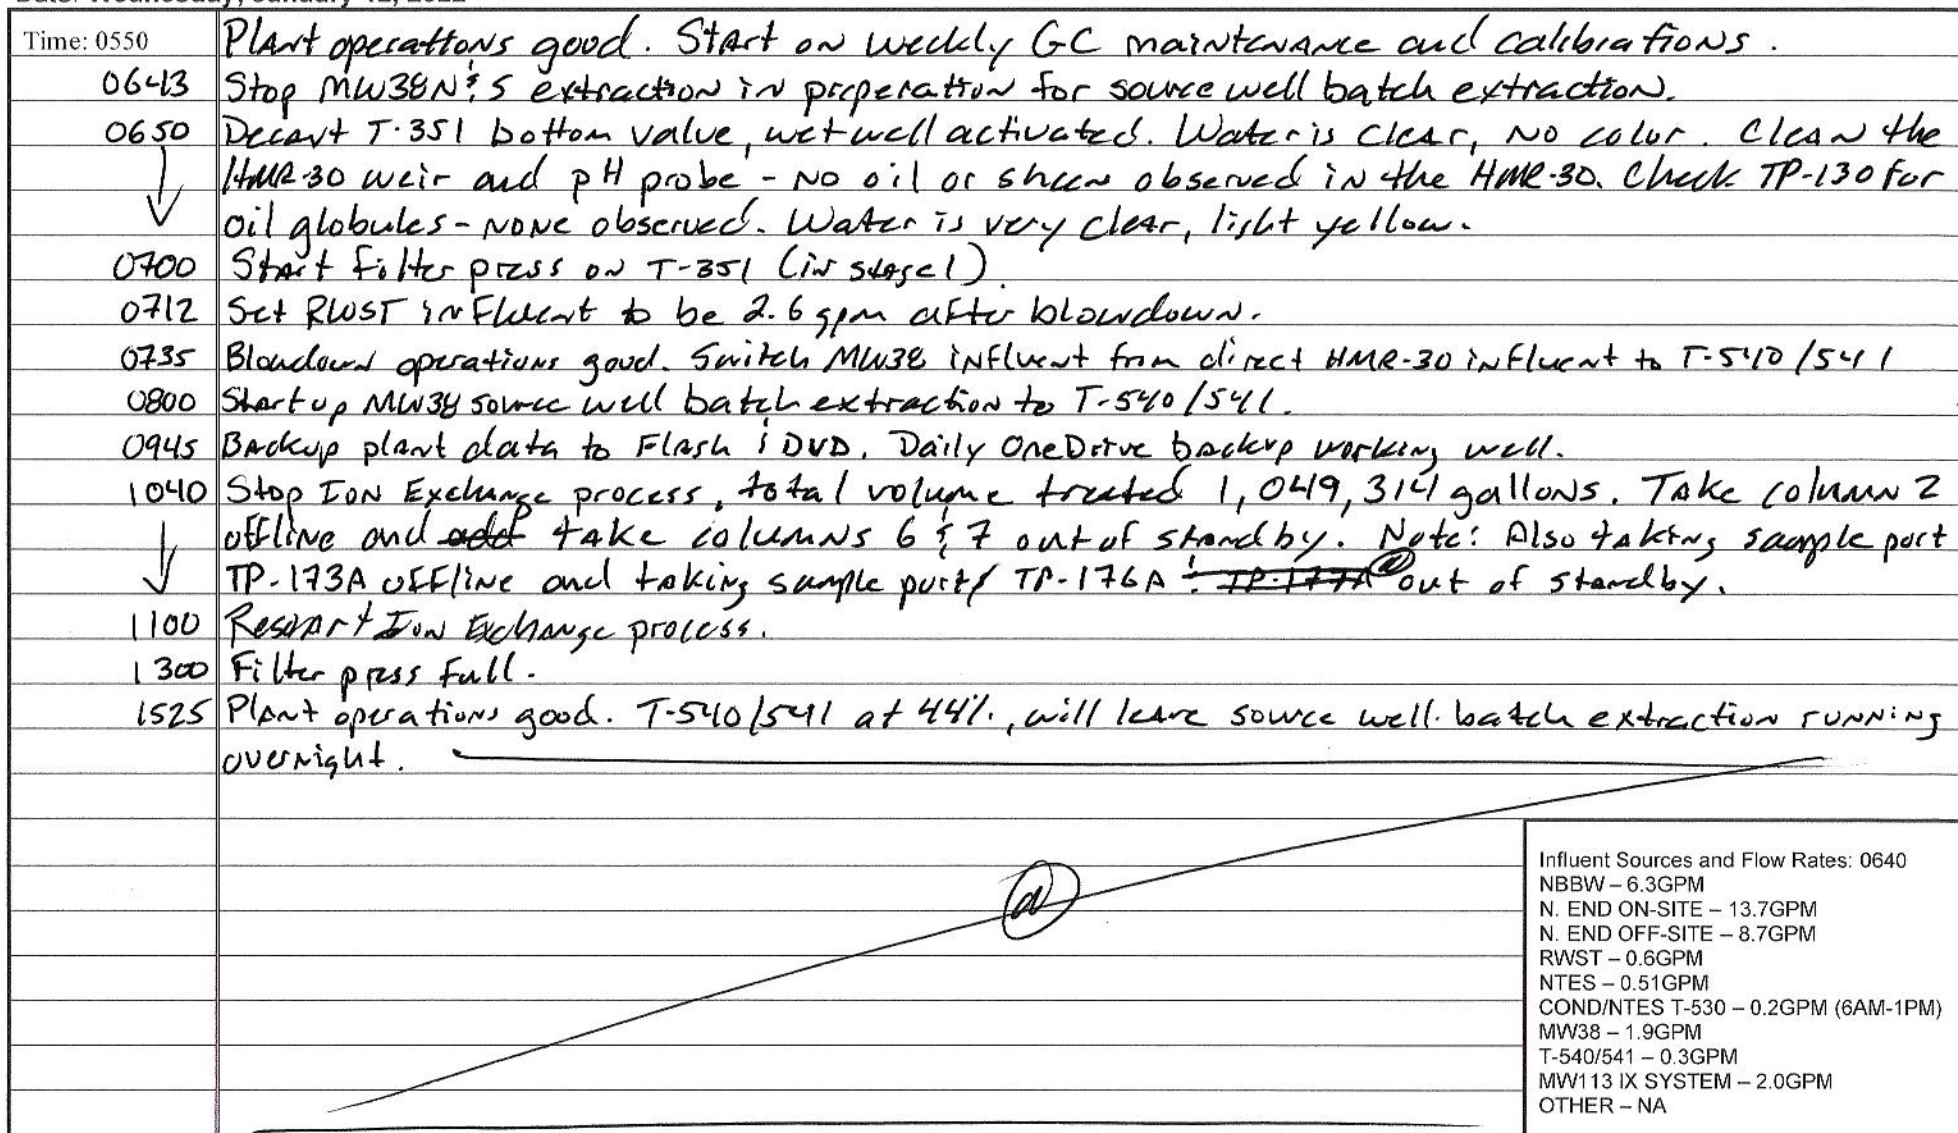 Time: 0550 Plant operations good. Start on weekly GC maintenance and calibrations.
0643 Stop MW38N & S extraction in preperation for source well batch extraction.
0650 Decant T-351 bottom valve, wet well activated. Water is clear, no color. Clean the
HMR-30 weir and pH probe - no oil or sheen observed in the HMR-30. Check TP-130 for
oil globules - none observed. Water is very clear, light yellow.
0700 Start filter press on T-351 (in stage 1)
0712 Set RWST influent to be 2.6 gpm after blowdown.
0735 Blowdown operations good. Switch MW38 influent from direct HMR-30 influent to T-540/541
0800 Start up MW38 source well batch extraction to T-540/541.
0945 Backup plant data to Flash & DVD. Daily OneDrive backup working well.
1040 Stop Ion Exchange process, total volume treated 1,049,314 gallons. Take column 2
offline and add take columns 6 & 7 out of standby. Note: Also taking sample port
TP-173A offline and taking sample port TP-176A & TP-177A out of standby.
1100 Restart Ion Exchange process.
1300 Filter press full.
1525 Plant operations good. T-540/541 at 44%, will leave source well batch extraction running
overnight.
Influent Sources and Flow Rates: 0640
NBBW – 6.3GPM
N. END ON-SITE – 13.7GPM
N. END OFF-SITE – 8.7GPM
RWST – 0.6GPM
NTES – 0.51GPM
COND/NTES T-530 – 0.2GPM (6AM-1PM)
MW38 – 1.9GPM
T-540/541 – 0.3GPM
MW113 IX SYSTEM – 2.0GPM
OTHER – NA